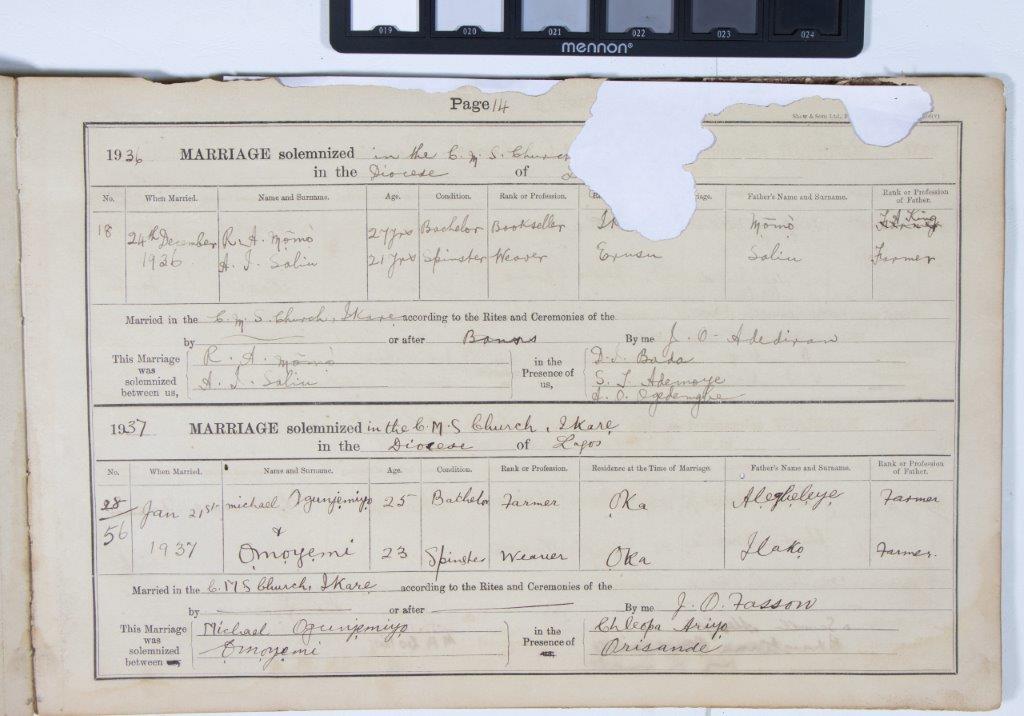 019 020 021 022 023 024
mennon®
Page 14
Shaw & Sons Ltd.,
1936 MARRIAGE solemnized in the C.M.S. Church
in the Diocese of
No. When Married. Name and Surname. Age. Condition. Rank or Profession. Father's Name and Surname. Rank or Profession of Father.
18 24th December R. A. Mọmọ̀ 27 yrs Bachelor Bookseller Mọmọ̀ King
1936 A. I. Saliu 21 yrs Spinster Weaver Erusu Saliu Farmer
Married in the C.M.S. Church, Ikarẹ according to the Rites and Ceremonies of the
by or after Banns By me J. O. Adediran
This Marriage was solemnized between us, R. A. Mọmọ̀ in the Presence of us, D. J. Bada
A. I. Saliu S. L. Ademoye
Ogedengbe
1937 MARRIAGE solemnized in the C.M.S Church, Ikarẹ
in the Diocese of Lagos
No. When Married. Name and Surname. Age. Condition. Rank or Profession. Residence at the Time of Marriage. Father's Name and Surname. Rank or Profession of Father.
28/56 Jan 21st michael Ogunjemiyọ 25 Bachelor Farmer ỌKa Alegbeleye Farmer
&
1937 Ọmọyẹmi 23 Spinster Weaver ỌKa Ilakọ Farmer.
Married in the C.M.S Church, Ikarẹ according to the Rites and Ceremonies of the
by or after By me J. O. Fasson
This Marriage was solemnized between us, Michael Ogunjemiyọ in the Presence of us, Chleopa Ariyọ
Ọmọyẹmi Orisande